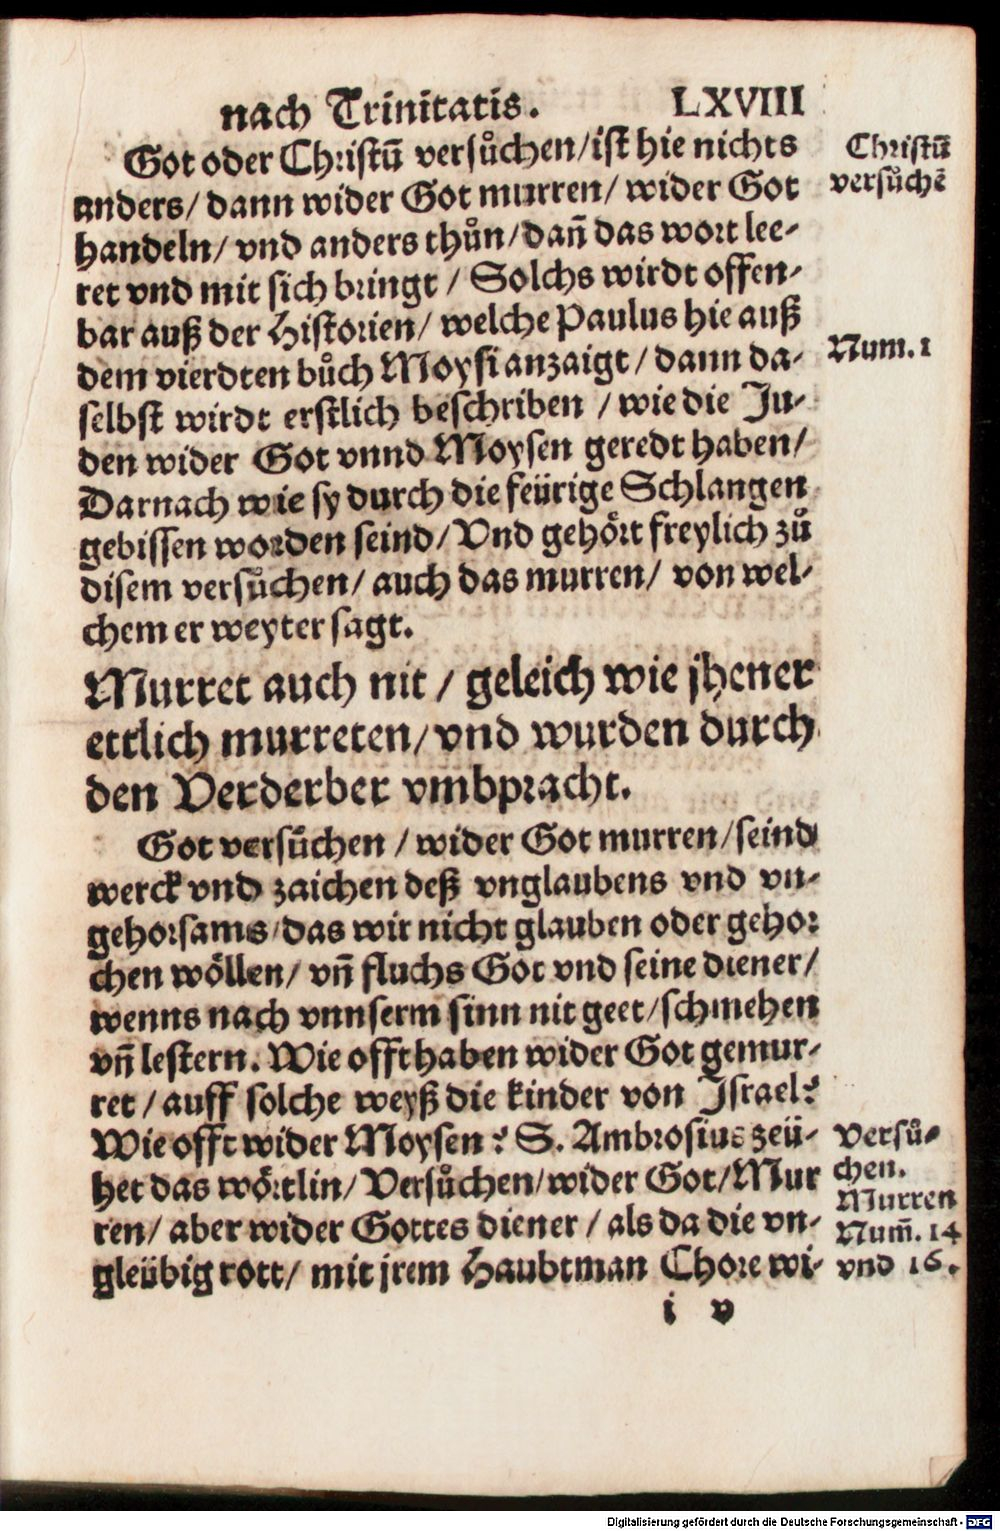 nach Trinitatis. LXVIII
Got oder Christū versůchen/ist hie nichts
anders/ dann wider Got murren/ wider Got
handeln/ vnd anders thůn/dañ das wort lee-
ret vnd mit sich bringt / Solchs wirdt offen-
bar auß der Historien/ welche Paulus hie auß
dem vierdten bůch Moysi anzaigt/ dann da-
selbst wirdt erstlich beschriben /wie die Ju-
den wider Got vnnd Moysen geredt haben/
Darnach wie sy durch die feürige Schlangen
gebissen worden seind/ Vnd gehört freylich zů
disem versůchen/ auch das murren/ von wel-
chem er weyter sagt.
Murret auch nit / geleich wie jhener
ettlich murreten/vnd wurden durch
den Verderber vm̄bpracht.
Got versůchen /wider Got murren/seind
werck vnd zaichen deß vnglaubens vnd vn-
gehorsams/das wir nicht glauben oder gehor
chen wöllen/ vñ fluchs Got vnd seine diener/
wenns nach vnnserm sinn nit geet/schmehen
vñ lestern. Wie offt haben wider Got gemur-
ret /auff solche weyß die kinder von Israel?
Wie offt wider Moysen? S. Ambrosius zeü-
het das wörtlin/ Versůchen/wider Got/Mur
ren/ aber wider Gottes diener / als da die vn-
gleübig rott/ mit jrem Haubtman Chore wi-
i v
Christū
versůchē
Num. 1
Versů-
chen.
Murren
Num̄. 14
vnd 16.
Digitalisierung gefördert durch die Deutsche Forschungsgemeinschaft - DFG